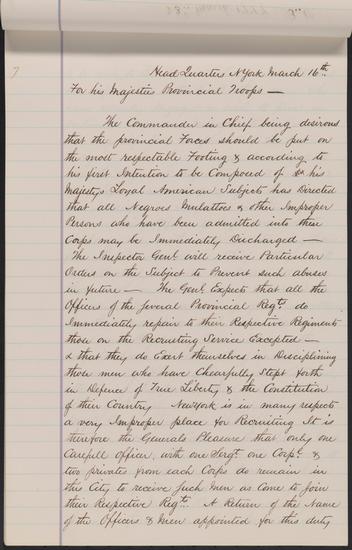 7
Head Quarters N York March 16th
For his Majesties Provincial Troops —
The Commander in Chief being desirous
that the provincial Forces should be put on
the most respectable Footing & according to
his first Intention to be Composed of his
Majestys Loyal American Subjects has Directed
that all Negroes Mulattoes & other Improper
Persons who have been admitted into these
Corps may be Immediately Discharged —
The Inspector Genl. will receive Particular
Orders on the Subject to Prevent such abuses
in future — The Genl. Expects that all the
Officers of the several Provincial Regts. do
Immediately repair to their Respective Regiments
those on the Recruiting Service Excepted —
& that they do Exert themselves in Disciplining
those men who have Chearfully Stept forth
in Defence of True Liberty & the Constitution
of their Country Newyork is in many respects
a very Improper place for Recruiting It is
therfore the Generals Pleasure that only one
Carefull officer, with one Sergt. one Corpl. &
two privates from each Corps do remain in
this City to receive Such Men as Come to Join
their Respective Regts. A Return of the Name
of the Officers & Men appointed for this duty